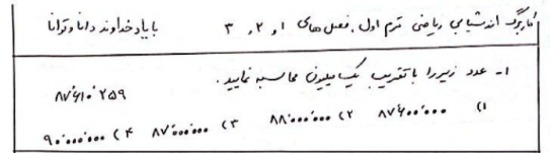 کاربرگ اندیشیابی ریاضی ترم اول. فصل های ۱ و ۲ و ۳ با یاد خداوند دانا و توانا
۱- عدد زیر را با تقریب یک میلیون محاسبه نمایید.
۸۷٬۶۱۰٬۲۵۹
۱) ۸۷۶۰۰۰۰۰ ۲) ۸۸٬۰۰۰٬۰۰۰ ۳) ۸۷٬۰۰۰٬۰۰۰ ۴) ۹۰٬۰۰۰٬۰۰۰